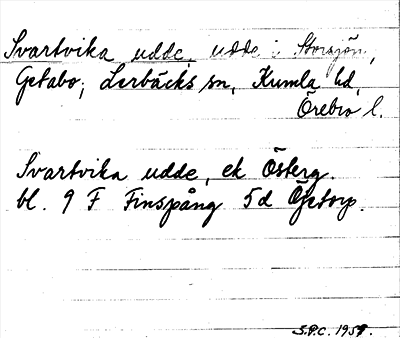 Svartvika udde, udde i Storsjön,
Getabo; Lerbäcks sn, Kumla hd,
Örebro l.
Svartvika udde, ek Österg.
bl. 9 F Finspång 5d Getorp.
S.P.C. 1959.